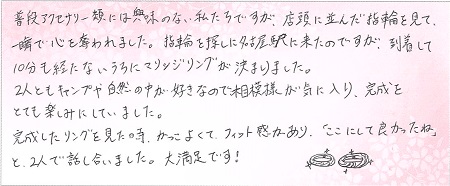 普段アクセサリー類には興味のない私たちですが、店頭に並んだ指輪を見て、
一瞬で心を奪われました。指輪を探しに名古屋駅に来たのですが、到着して
10分も経たないうちにマリッジリングが決まりました。
2人ともキャンプや自然の中が好きなので相模様が気に入り、完成を
とても楽しみにしていました。
完成したリングを見た時、かっこよくて、フィット感があり、「ここにして良かったね」
と、2人で話し合いました。大満足です!